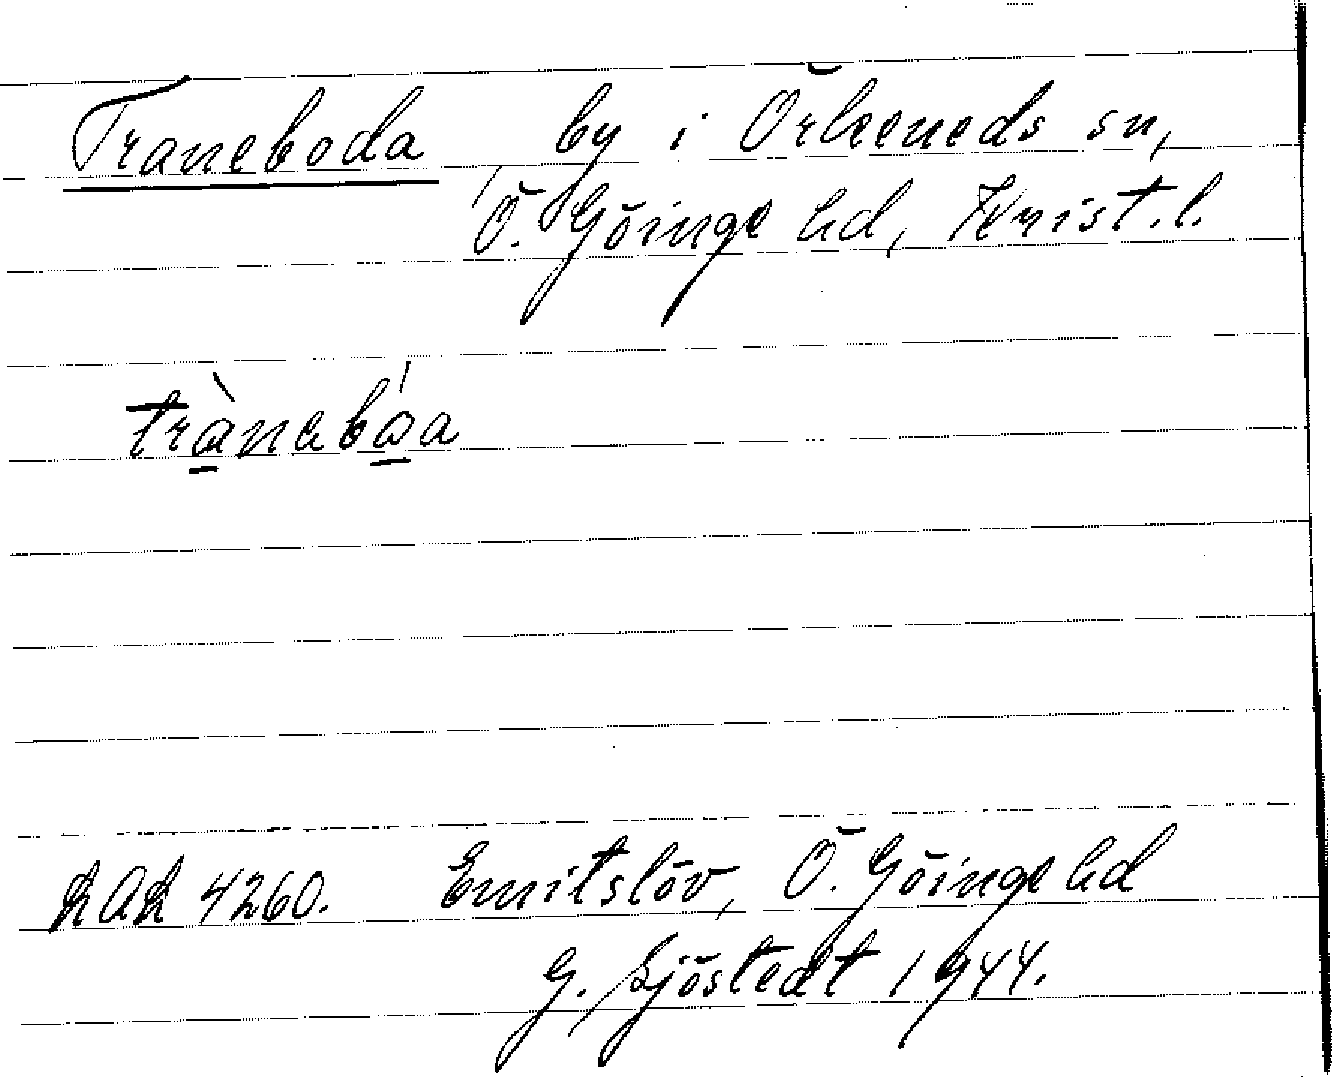 Traneboda by i Örkeneds sn,
Ö. Göinge hd, Krist. l.
trànebóa
LAL 4260. Emitslöv, Ö. Göinge hd
G. Sjöstedt 1944.